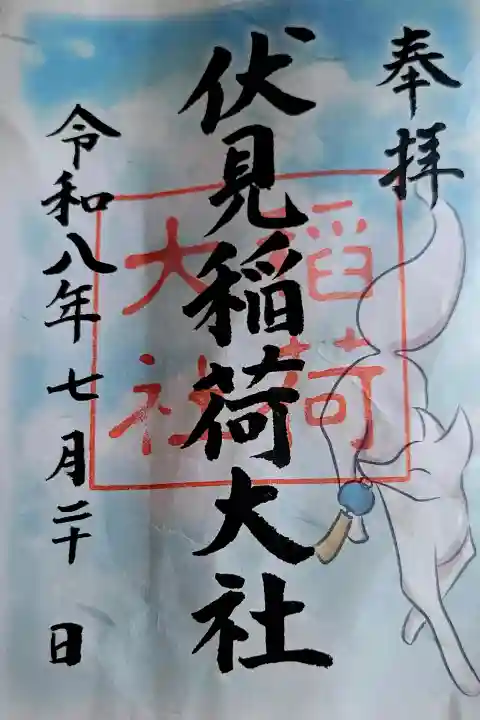 奉拝
伏見稲荷大社
稲荷
大社
令和八年七月二十日